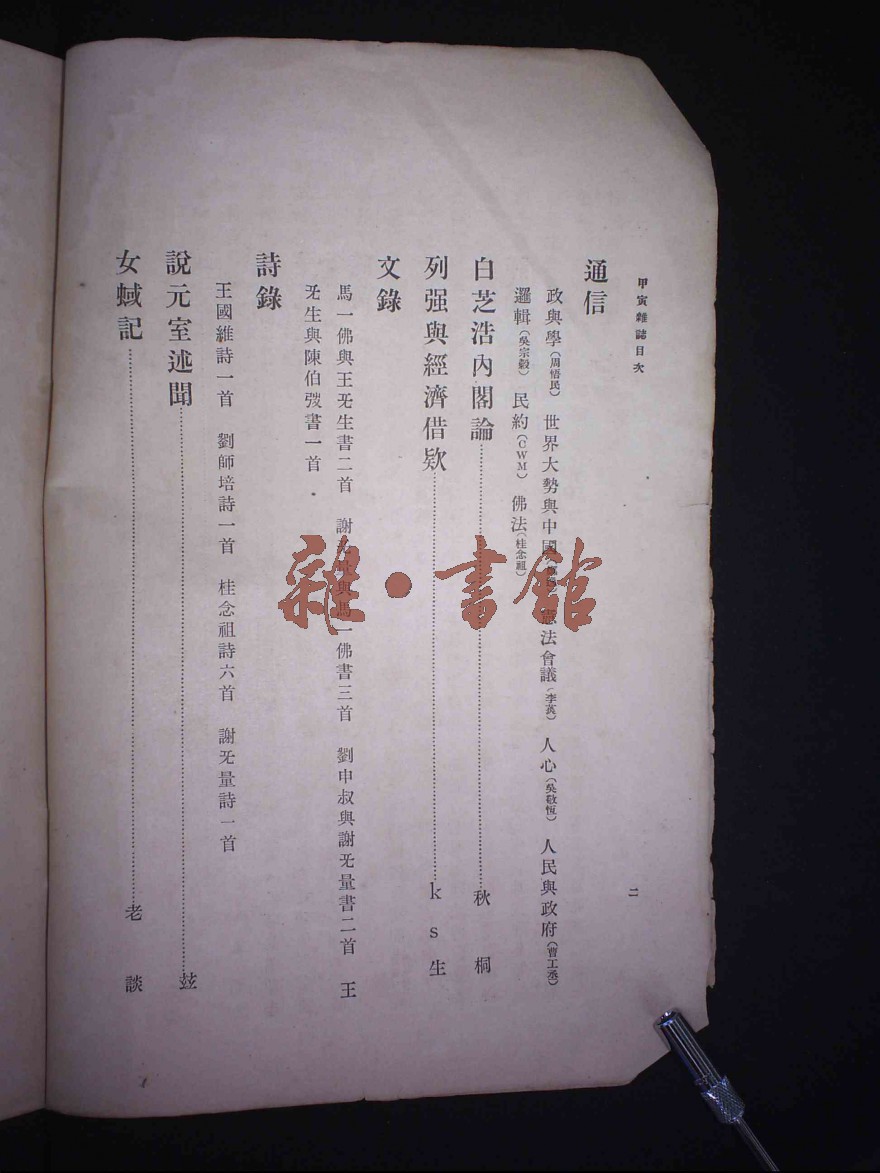 甲寅雜誌目次 二
通信
政與學(周悟民) 世界大勢與中國 憲法會議(李菼) 人心(吳敬恆) 人民與政府(曹工丞)
邏輯(吳宗轂) 民約(CWM) 佛法(桂念祖)
白芝浩內閣論 秋桐
列强與經濟借欵 ks生
文錄
馬一佛與王旡生書二首 謝旡量與馬一佛書三首 劉申叔與謝旡量書二首 王
旡生與陳伯弢書一首
詩錄
王國維詩一首 劉師培詩一首 桂念祖詩六首 謝旡量詩一首
說元室述聞 玆
女蜮記 老談
雜·書館